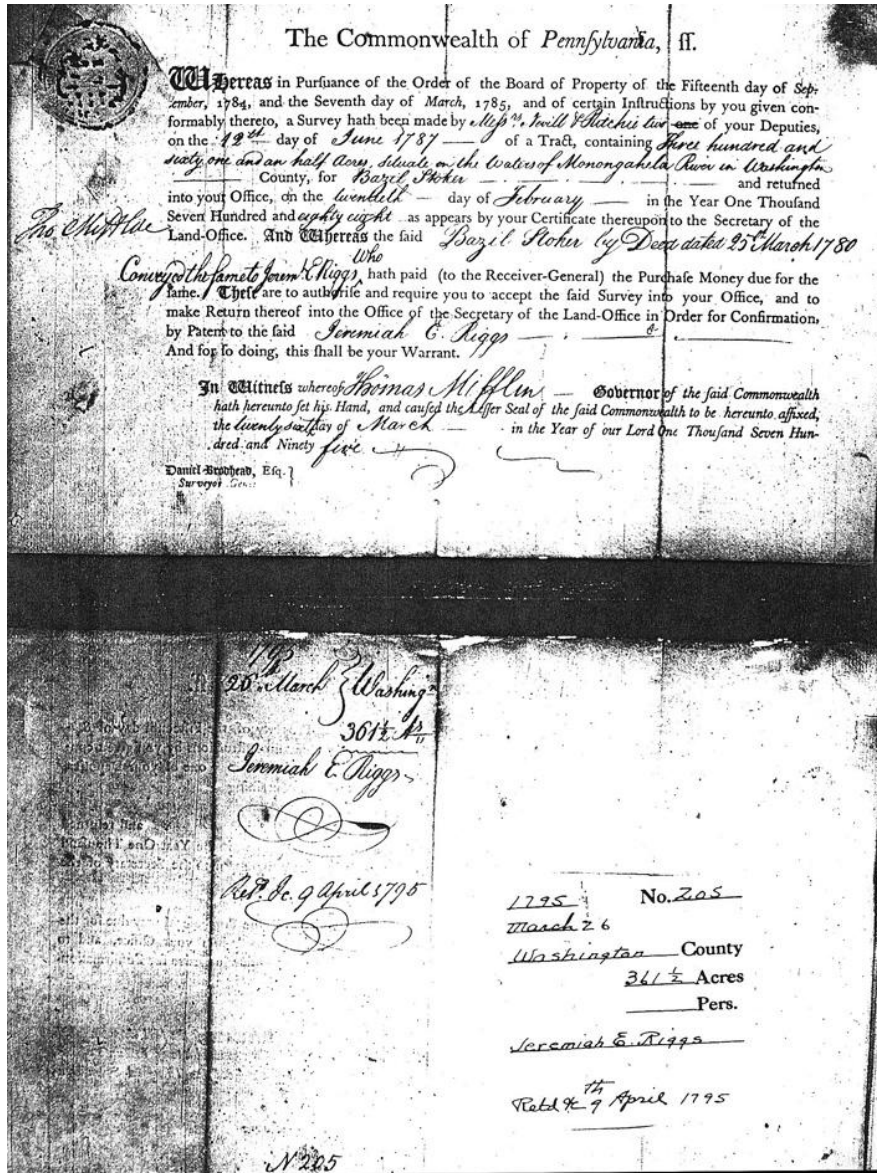 The Commonwealth of Pennſylvania, ſſ.
WHereas in Purſuance of the Order of the Board of Property of the Fifteenth day of Sep-
tember, 1784, and the Seventh day of March, 1785, and of certain Inſtructions by you given con-
formably thereto, a Survey hath been made by Meſsrs. Nevill & Ritchie two one of your Deputies,
on the 12th day of June 1787 of a Tract, containing Three hundred and
sixty one and an half Acres, situate on the Waters of Monongahela River in Washington
County, for Bazil Stoker and returned
into your Office, on the twentieth day of February in the Year One Thouſand
Seven Hundred and eighty eight as appears by your Certificate thereupon to the Secretary of the
Land-Office. And Whereas the said Bazil Stoker by Deed dated 25th March 1780
Tho Mifflin
Who
Conveyed the same to Jerem. E. Riggs, hath paid (to the Receiver-General) the Purchaſe Money due for the
ſame. Theſe are to authoriſe and require you to accept the ſaid Survey into your Office, and to
make Return thereof into the Office of the Secretary of the Land-Office in Order for Confirmation,
by Patent to the ſaid Jeremiah E. Riggs
And for ſo doing, this ſhall be your Warrant.
In Witneſs whereof Thomas Mifflin Governor of the ſaid Commonwealth
hath hereunto ſet his Hand, and cauſed the Leſſer Seal of the ſaid Commonwealth to be hereunto affixed,
the twenty sixth day of March in the Year of our Lord One Thouſand Seven Hun-
dred and Ninety five
Daniel Brodhead, Eſq.
Surveyor Gen
1795
26th March } Washingn
361½ As
Jeremiah E. Riggs
Retd. &c. 9 April 1795
N 205
1795 No. 205
March 26
Washington County
361 ½ Acres
Pers.
Jeremiah E. Riggs
Retd &c 9th April 1795